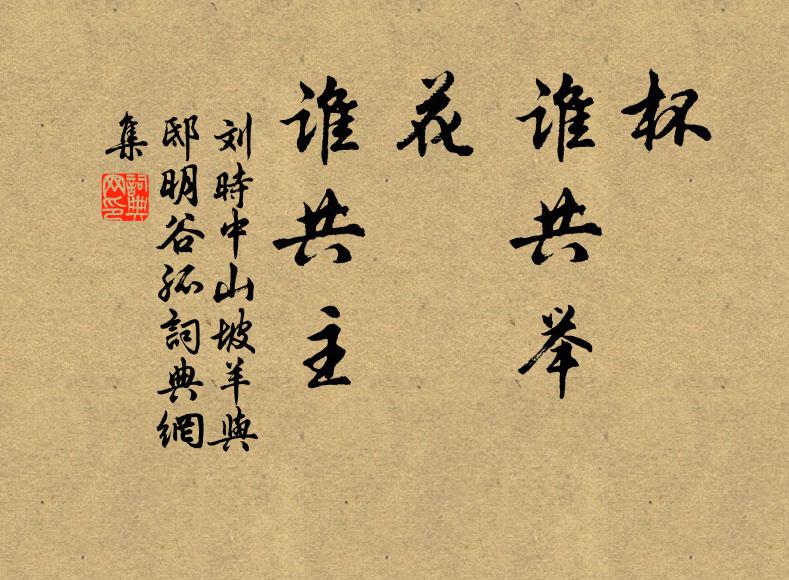 杯
谁共举
花
谁共主
刘時中山坡羊與
邸明谷孤詞典網
集
詞典
网印